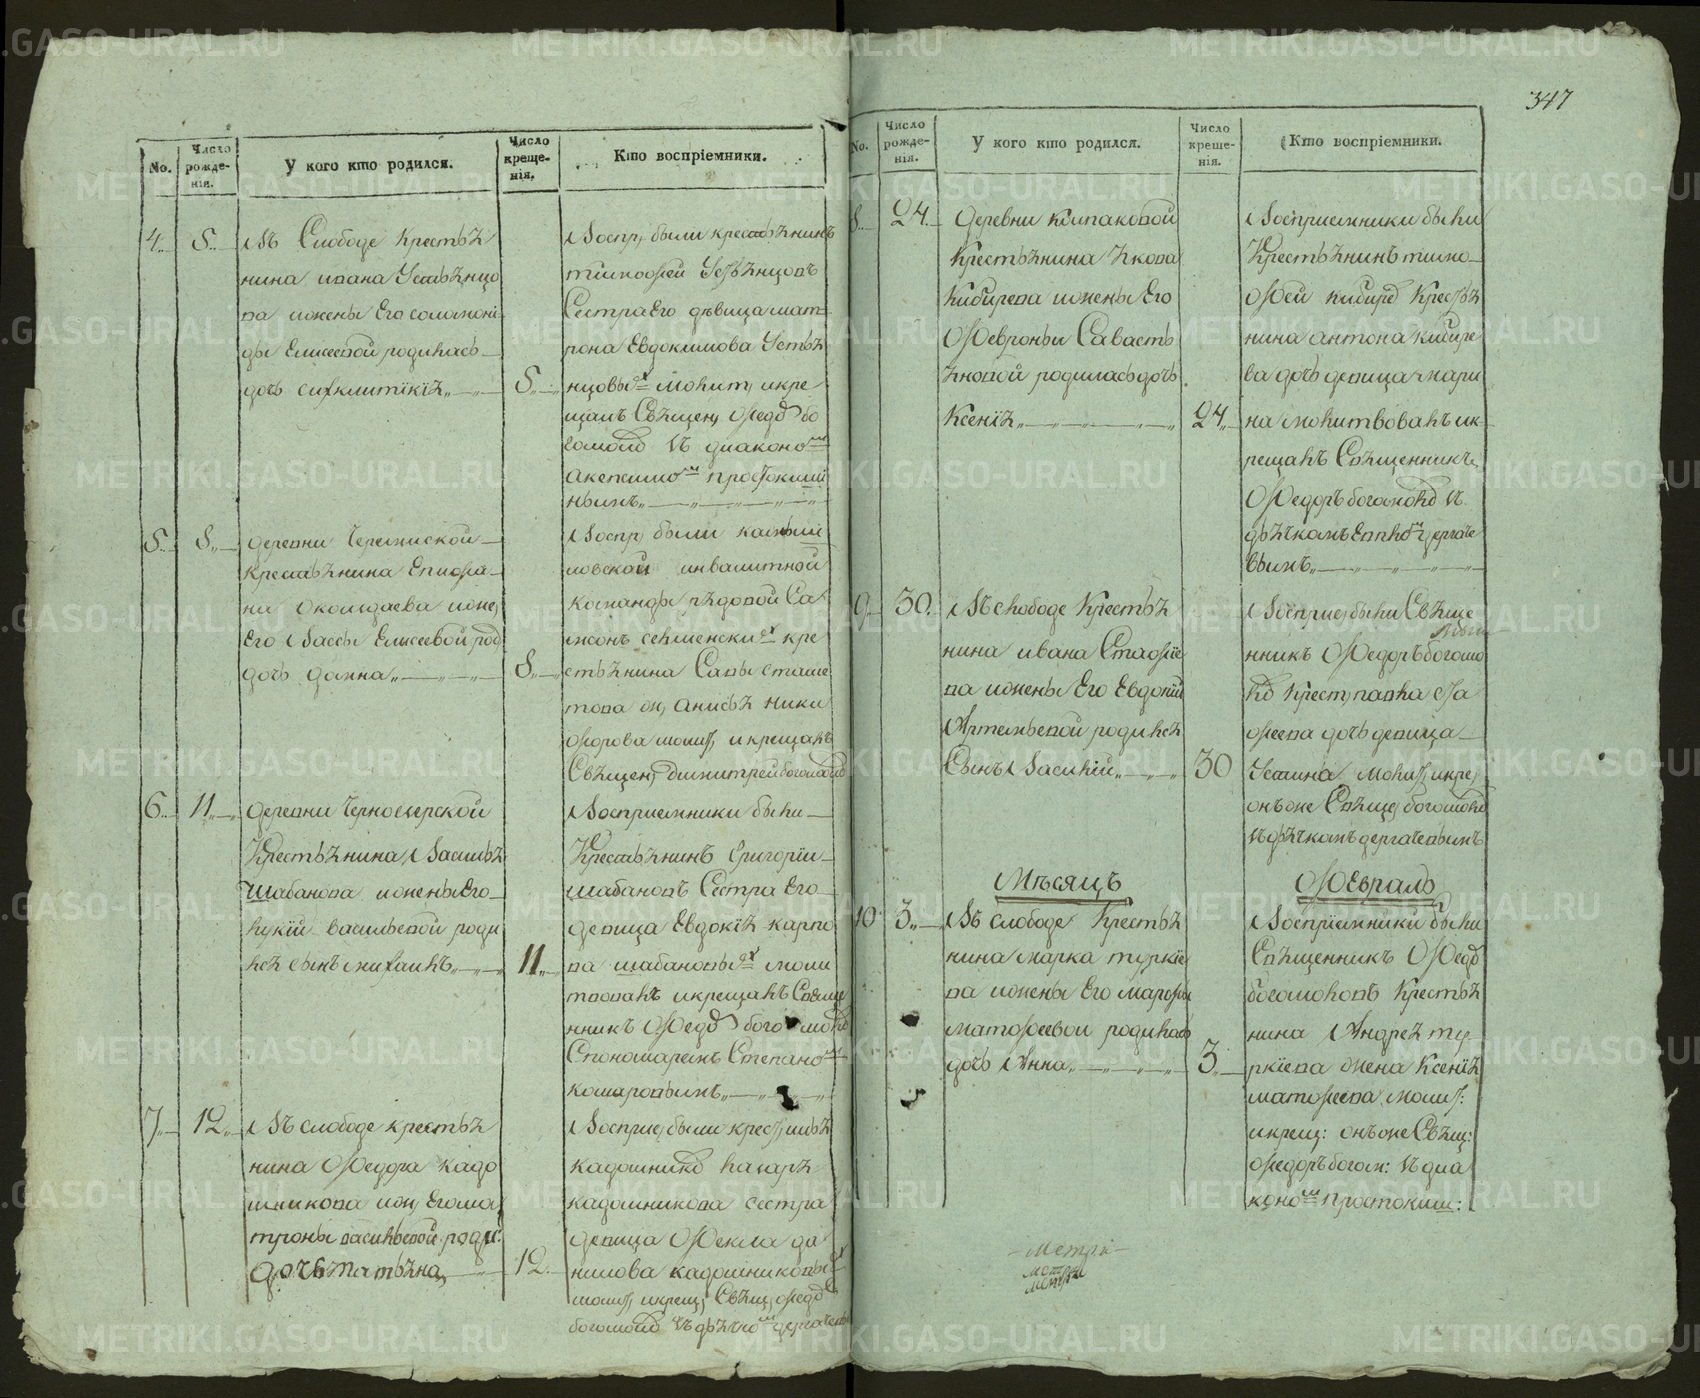 347
No.
Число рожде-нія.
У кого кто родился.
Число креще-нія.
Кто воспріемники.
4
5
Въ Слободе крестья
нина ивана Устьянцо
ва ижены Его соломони
ды Елисеевой родилась
дочь синклитикія
5
Воспр, были крестьянинъ
тимофей Устьянцовъ
Сестра Его дѣвица мат
рона Евдокимова Устья
нцовыхъ молит, икре
щалъ Свящең, Ѳедо бо
гомоло съ диакономъ
Акепсимомъ простокиши
нымъ
5
8
деревни Черемиской
крестьянина Епифа
на ижены
Его Вассы Елисеевой род
дочь домна
8
Воспр, были камыш
ловской инвалитной
команды рядовой Са
мсонъ кре
стьянина Савы
това жен, анисья ники
форова молит, икрещалъ
Священ, Димитрей богомоло
6
11
деревни Черноозерской
Крестьянина Василья
Шабанова ижены Его
лукии васильевой роди
лся сынъ михаилъ
11
Восприемники были
Крестьянинъ Григории
шабановъ Сестра Его
девица Евдокія карпо
ва шабановыхъ моли
твовалъ икрещалъ Свяще
нникъ Ѳедо богомоло
Спономаремъ Степаномъ
комаровымъ
7
12
Въ слободе крестья
нина Ѳедора кадо
шникова ижен, Его ма
троны васильевой роди
дочь татьяна
12
Восприе, были крест, илья
кадошнико назаръ
кадошникова сестра
девица Ѳекла да
нилова кадошниковыхъ
молит, икрещ, Свящ, Ѳедо
богомоло съ дьячкомъ дергачевы
No.
Число рожде-нія.
У кого кто родился.
Число креще-нія.
Кто воспріемники.
8
24
деревни колпаковой
Крестьянина Якова
Кибирева ижены Его
Ѳевроньи Савасть
яновой родилась дочь
Ксенія
24
Восприемники были
Крестьянинъ тимо
Ѳей кибире Крестья
нина антона кибире
ва дочь девица мари
на молитвовалъ ик
рещалъ Священникъ
Ѳедоръ богомоло съ
дьячкомъ дергаче
вымъ
9
30
Въ слободе Крестья
нина ивана Стафие
ва ижены Его Евдокии
Артемьевой родился
Сынъ Василій
30
Восприе, были Свяще
нникъ Ѳедоръ богомо
ло Крест, павла
дочь девица
Устина молит, икре,
онъ же Свяще, богомоло
съ дьячкомъ дергачевымъ
Мѣсяцъ
Ѳевраль
10
3
Въ слободе Крестья
нина марка туркіе
ва ижены Его марфы
матѳеевой родилась
дочь Анна
3
Воспріемники были
Священникъ Ѳедо
богомоловъ Крестья
нина Андрея ту
ркіева жена Ксенія
матѳеева молит:
икрещ: онъ же Свящ:
Ѳедоръ богом: съ диа
кономъ простокиш:
Метри
Метри
Метри
METRIKI.GASO-URAL.RU